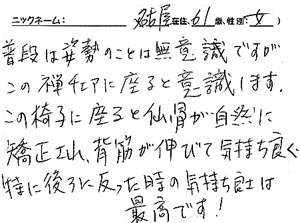 ニックネーム: 名古屋在住, 61歳, 性別: 女)
普段は姿勢のことは無意識ですが
この禅チェアに座ると意識します。
この椅子に座ると仙骨が自然に
矯正され、背筋が伸びて気持ち良く
特に後ろに反った時の気持ち良さは
最高です!